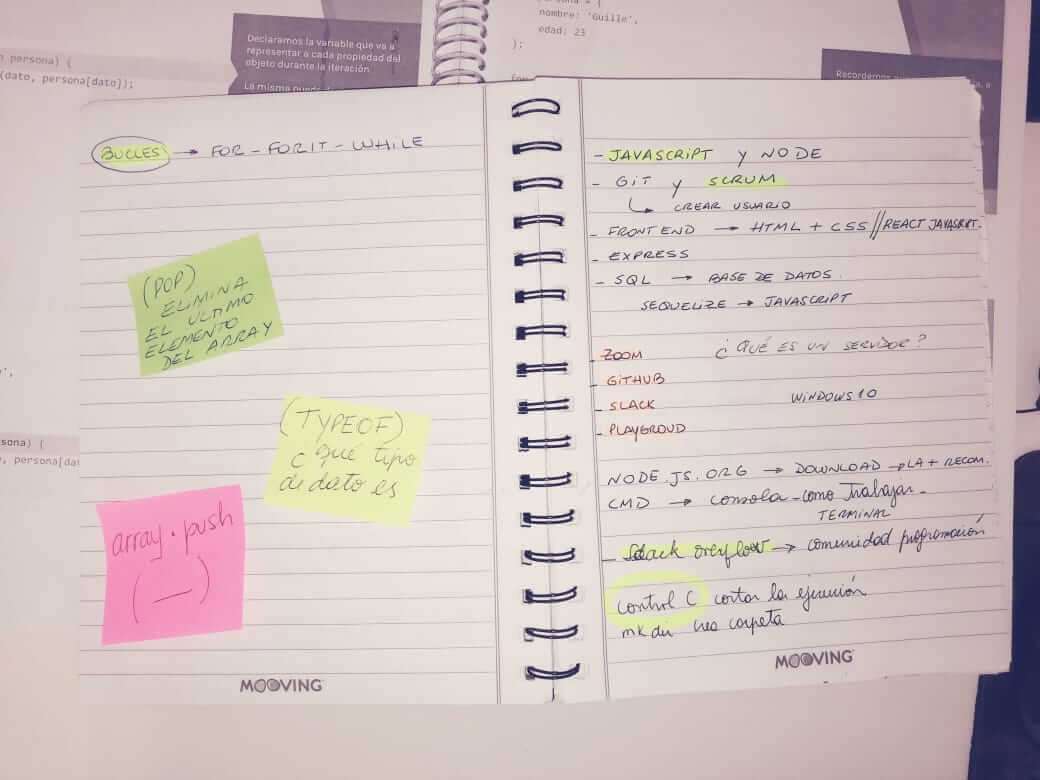 persona = {
nombre: 'Guille',
edad: 23
};
persona) {
(dato, persona[dato]);
Declaramos la variable que va a
representar a cada propiedad del
objeto durante la iteración
La misma
Recordemos
sona) {
persona[da
BUCLES → FOR - FORIT - WHILE
(POP)
ELIMINA
EL ULTIMO
ELEMENTO
DEL ARRAY
(TYPEOF)
¿ qué tipo
de dato es
array.push
(—)
MOOVING
- JAVASCRIPT y NODE
- GIT y SCRUM
↳ CREAR USUARIO
- FRONT END → HTML + CSS // REACT JAVASRPT.
- EXPRESS
- SQL → BASE DE DATOS.
SEQUELIZE → JAVASCRIPT
- ZOOM ¿ QUÉ ES UN SERVIDOR?
- GITHUB
- SLACK WINDOWS 10
- PLAYGROUD
NODE.JS.ORG → DOWNLOAD → LA + RECOM.
CMD → consola - como Trabajar -
TERMINAL
- Stack overflow → comunidad programación
control C cortar la ejecución
mkdir crea carpeta
MOOVING